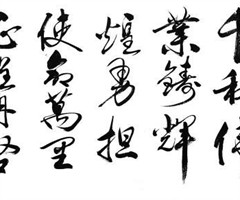 千秋偉
業鑄輝
煌勇担
使命萬里
征程